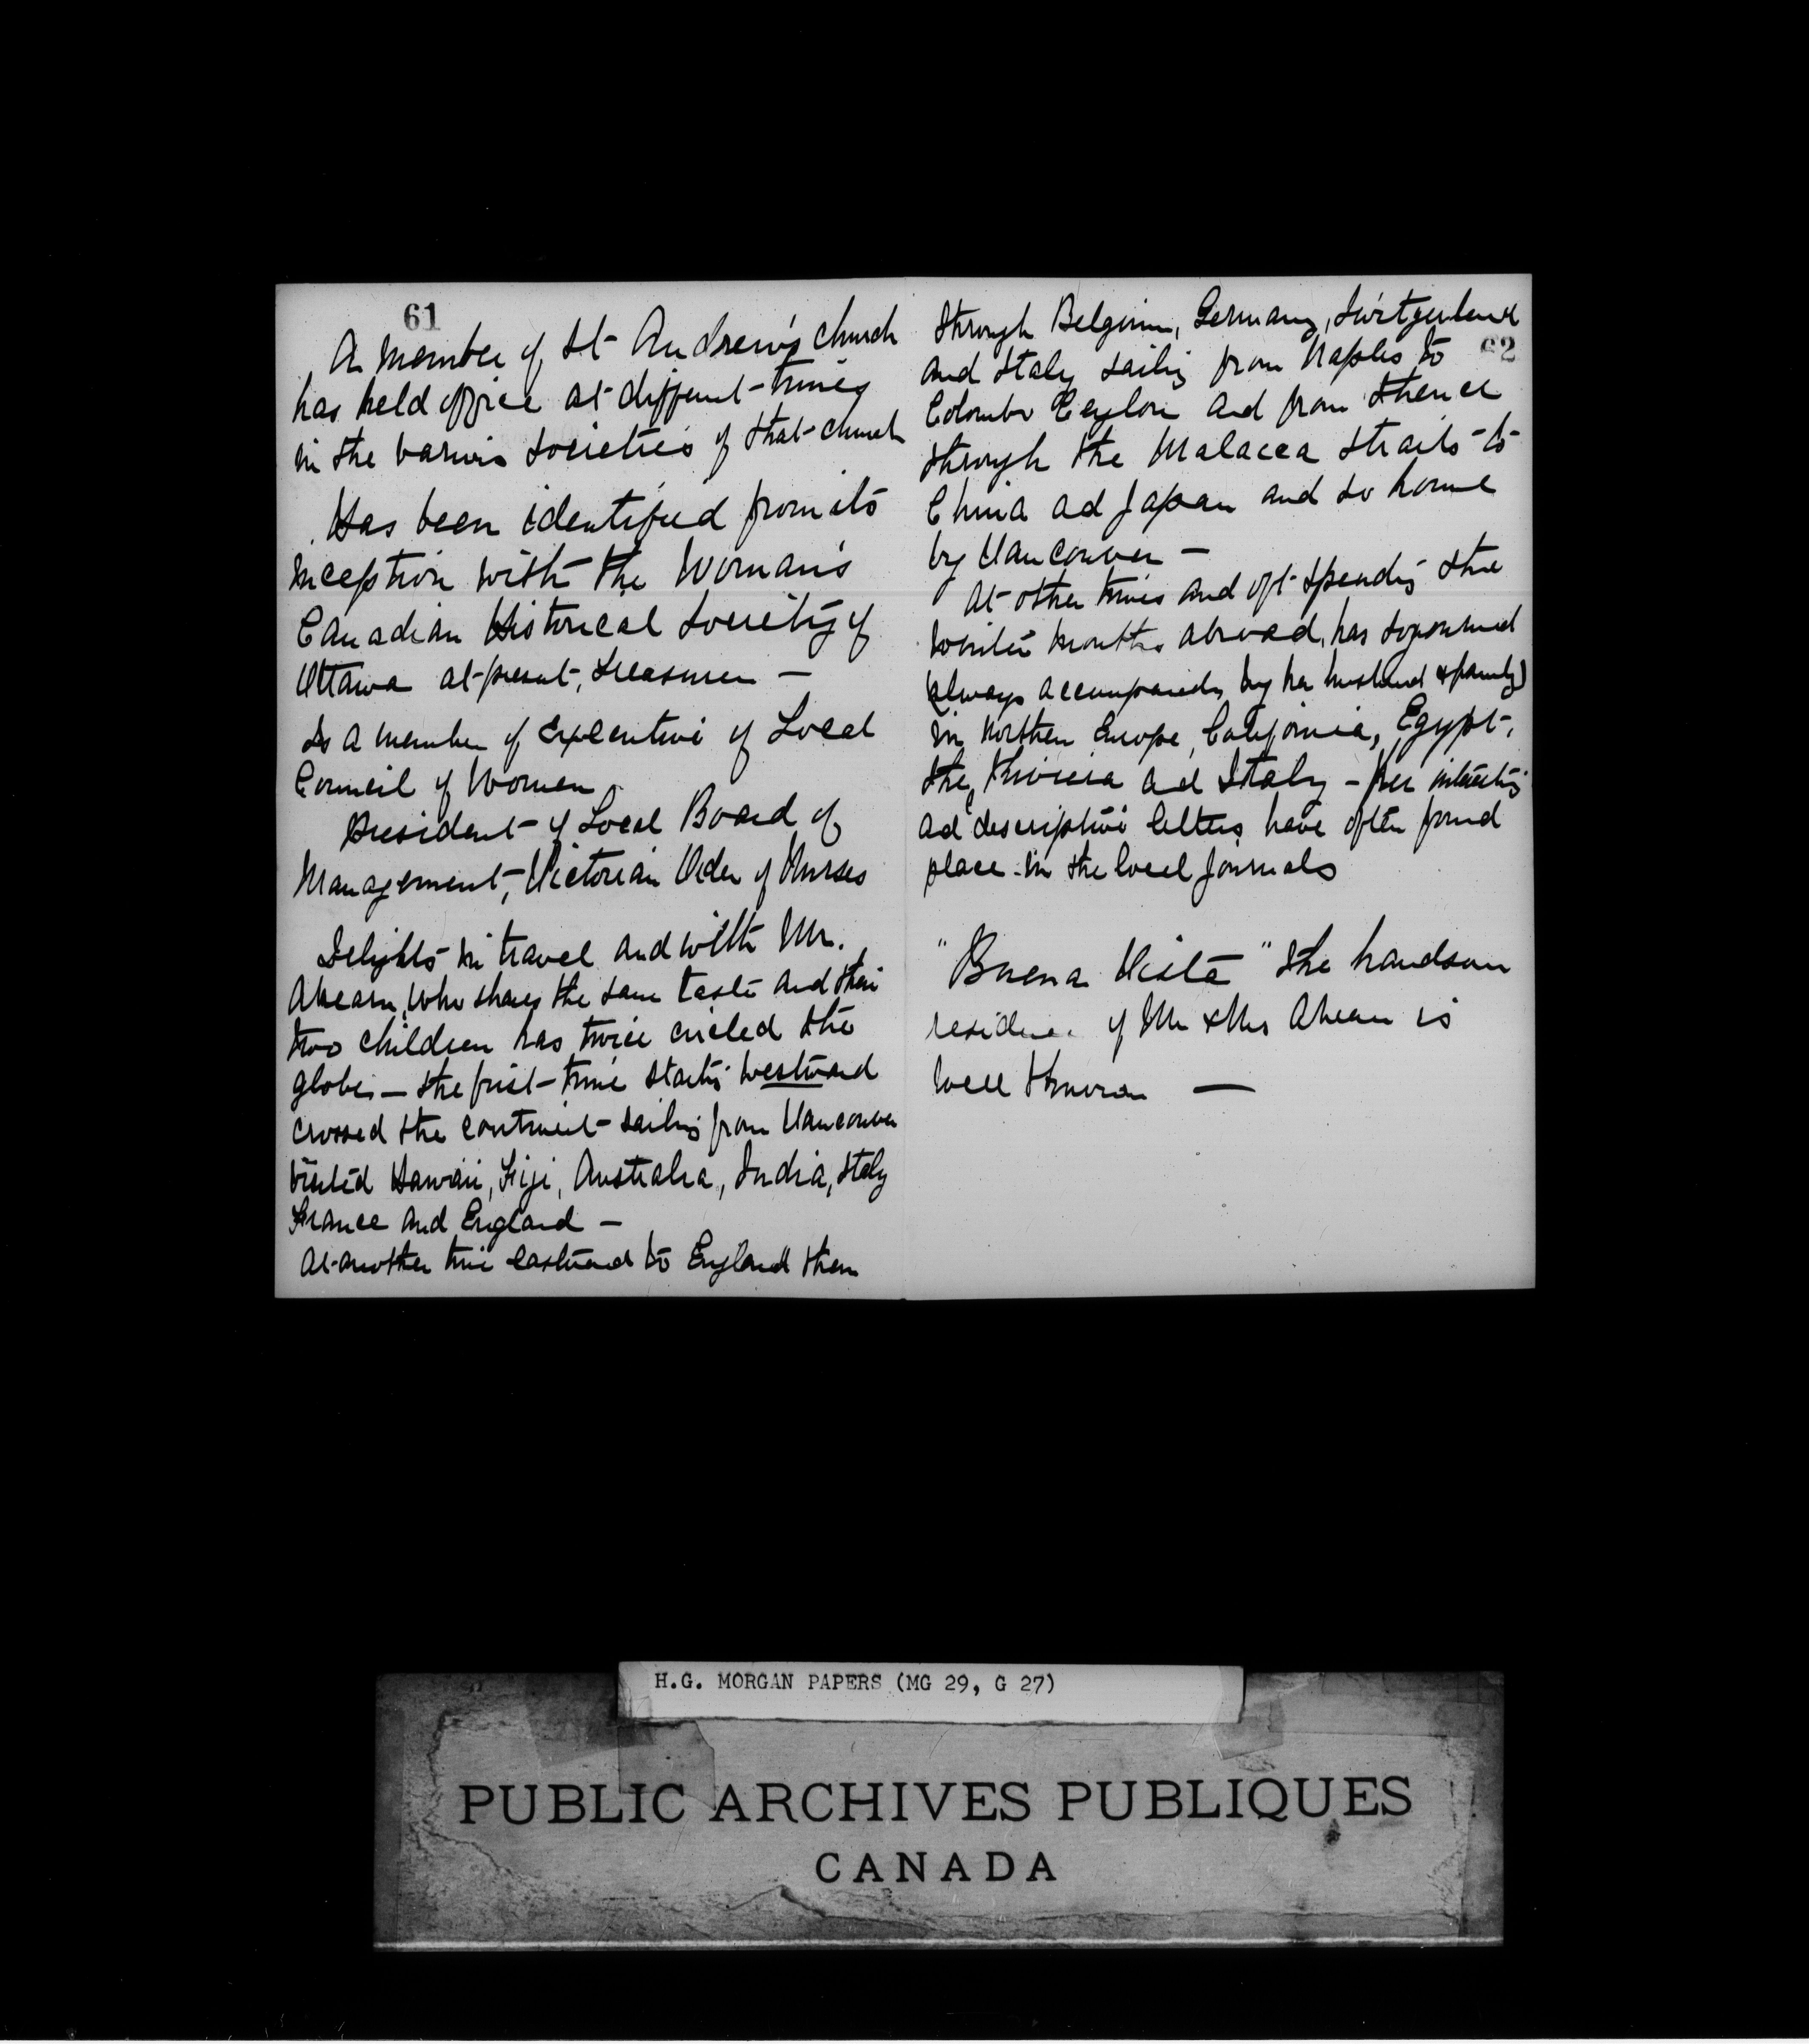 61
A member of St Andrew's church
has held office at different times
in the various societies of that church
Has been identified from its
inception with the Woman's
Canadian Historical Society of
Ottawa at present, treasurer —
Is a member of Executive of Local
Council of Women
President of Local Board of
Management, Victorian Order of Nurses
Delights in travel and with Mr.
Ahearn, who shares the same taste and their
two children has twice circled the
globe — the first time starting westward
crossed the continent sailing from Vancouver
visited Hawaii, Fiji, Australia, India, Italy
France and England —
At another time eastward to England then
62
through Belgium, Germany, Switzerland
and Italy sailing from Naples to
Colombo Ceylon and from thence
through the Malacca Straits to
China ad Japan and so home
by Vancouver —
At other times and oft spending the
winter months abroad, has sojourned
(always accompanied by her husband & family)
in northern Europe, California, Egypt,
the Riviera ad Italy — her interesting
ad descriptive letters have often found
place in the local journals
"Buena Vista" the handsom
residence of Mr & Mrs Ahearn is
well known —
H.G. MORGAN PAPERS (MG 29, G 27)
PUBLIC ARCHIVES PUBLIQUES
CANADA